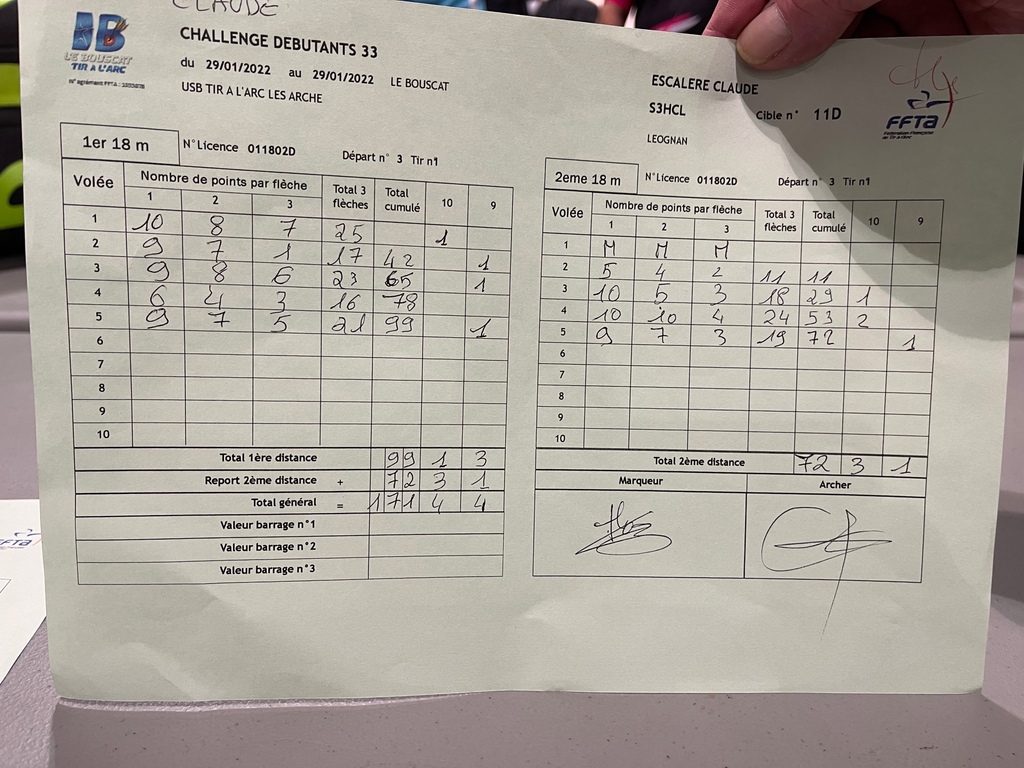 CLAUDE
LE BOUSCAT
TIR A L'ARC
CHALLENGE DEBUTANTS 33
du 29/01/2022 au 29/01/2022 LE BOUSCAT
USB TIR A L'ARC LES ARCHE
ESCALERE CLAUDE
S3HCL Cible n° 11D
LEOGNAN
FFTA
Fédération Française
de Tir à l'Arc
1er 18 m N°Licence 011802D Départ n° 3 Tir n°1
Volée Nombre de points par flèche Total 3 flèches Total cumulé 10 9
1 2 3
1 10 8 7 25 1
2 9 7 1 17 42 1
3 9 8 6 23 65 1
4 6 4 3 16 78
5 9 7 5 21 99 1
6
7
8
9
10
Total 1ère distance 99 1 3
Report 2ème distance + 72 3 1
Total général = 171 4 4
Valeur barrage n°1
Valeur barrage n°2
Valeur barrage n°3
2eme 18 m N°Licence 011802D Départ n° 3 Tir n°1
Volée Nombre de points par flèche Total 3 flèches Total cumulé 10 9
1 2 3
1 M M M
2 5 4 2 11 11
3 10 5 3 18 29 1
4 10 10 4 24 53 2
5 9 7 3 19 72 1
6
7
8
9
10
Total 2ème distance 72 3 1
Marqueur Archer
FFTA